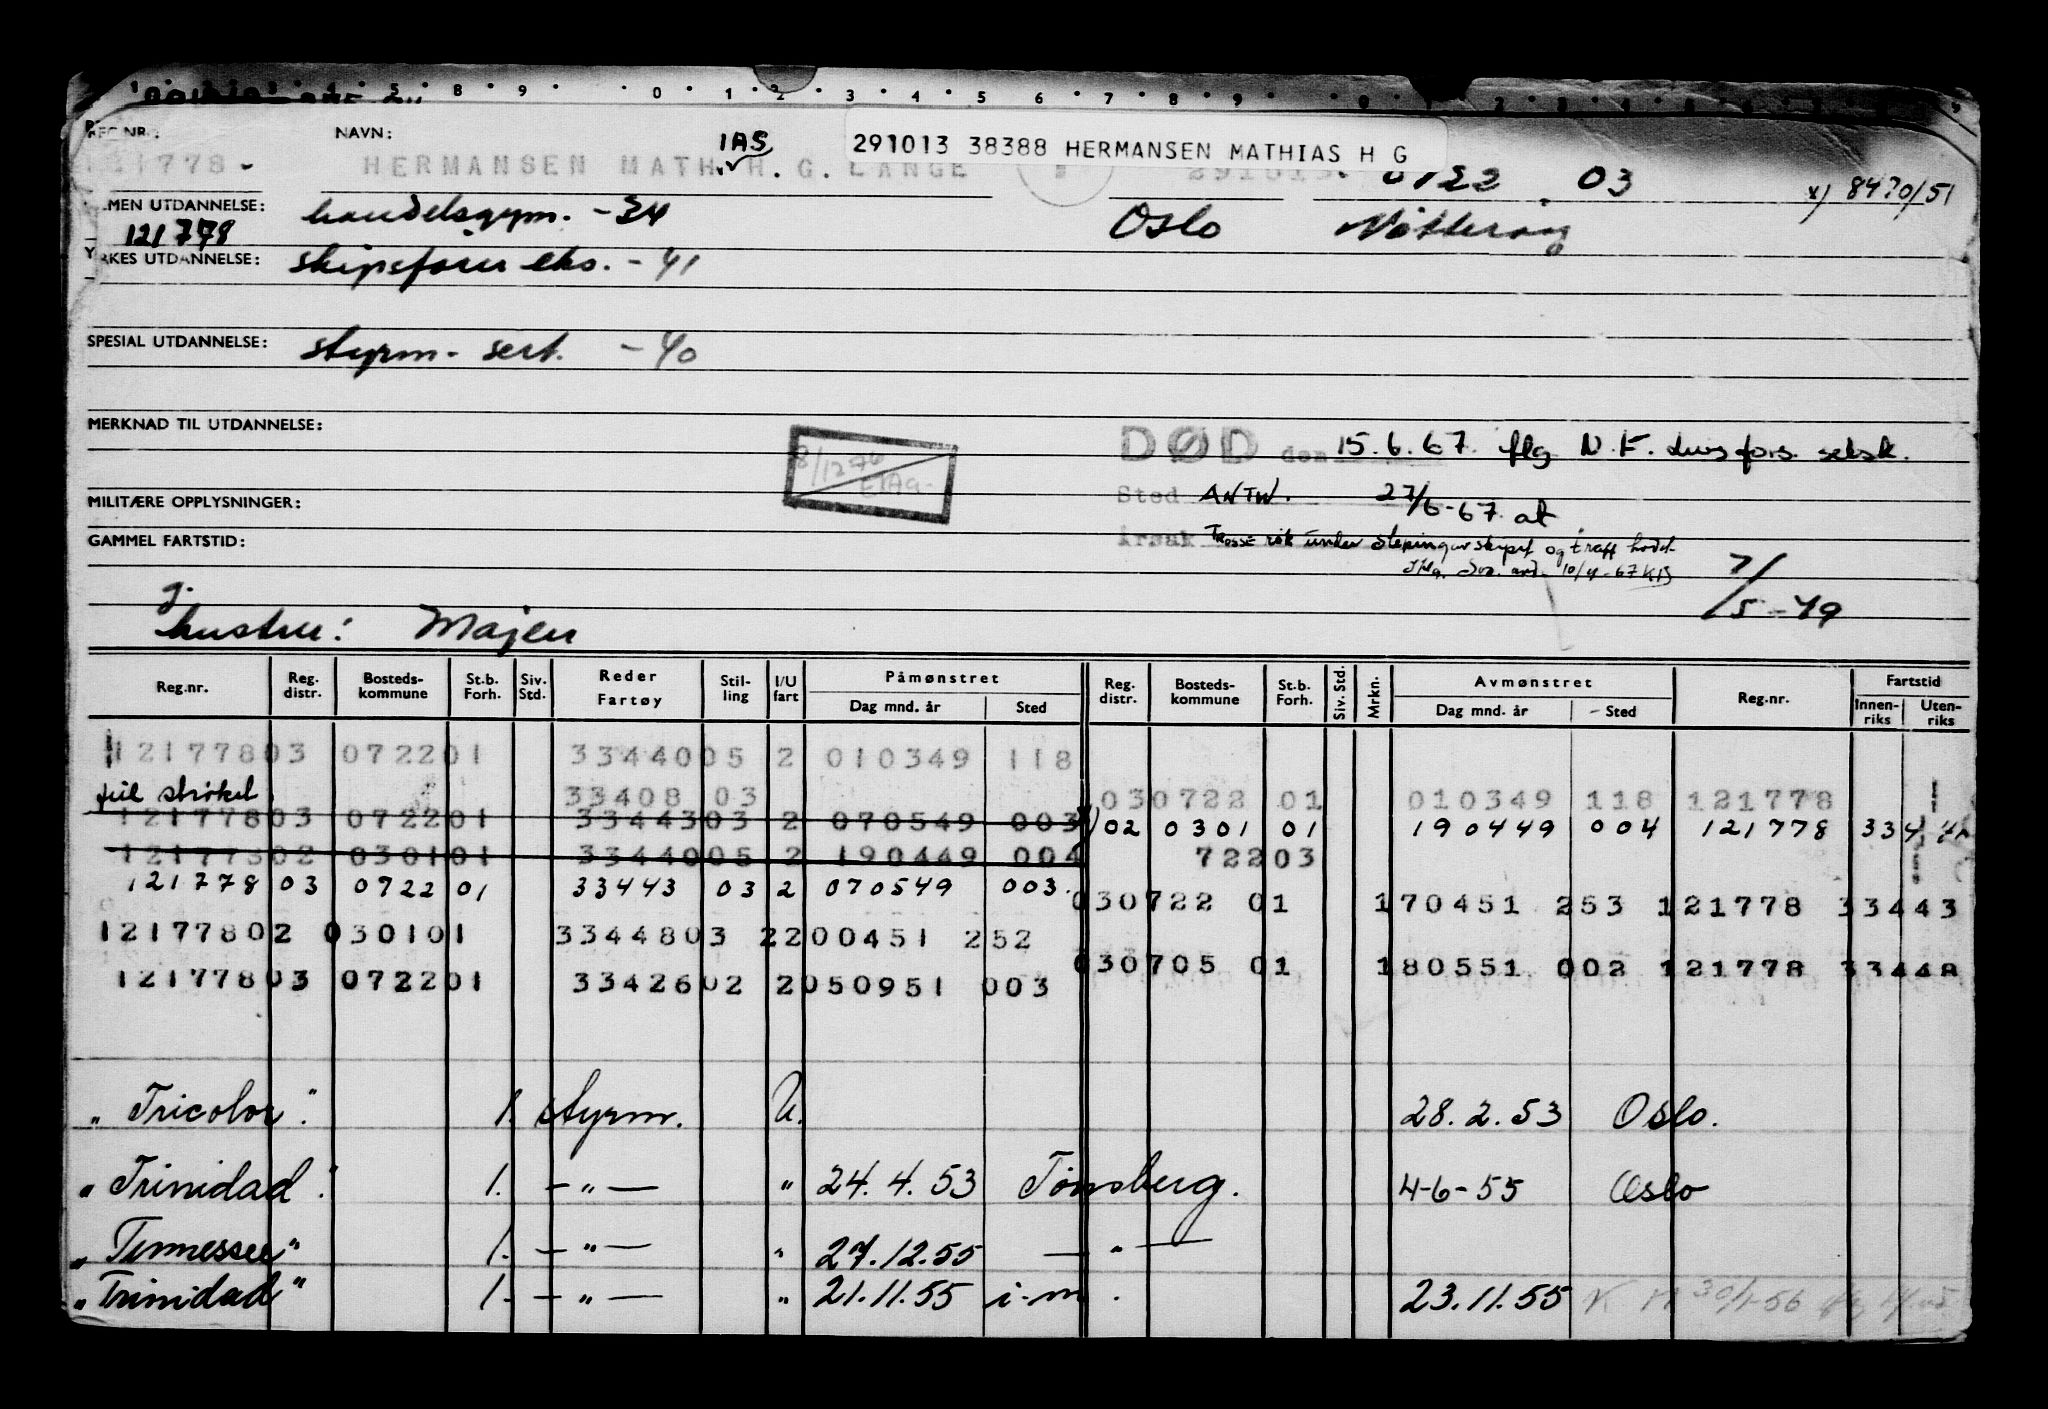 REG.NR.:
NAVN:
IAS
291013 38388 HERMANSEN MATHIAS H G
121778-
HERMANSEN MATH. H. G. LANGE
291013.
03
x) 8470/51
ALMEN UTDANNELSE:
handelsgym. -34
Oslo
Nøtterøy
121778
YRKES UTDANNELSE:
skipsfører eks. -41
SPESIAL UTDANNELSE:
styrm- sert. -40
MERKNAD TIL UTDANNELSE:
DØD den 15.6.67. flg N.F. Livsfors. selsk.
MILITÆRE OPPLYSNINGER:
Sted ANTW. 27/6-67. at
GAMMEL FARTSTID:
Årsak Trosse røk under slepingav skipet og traff hodet
7/5-49
g.
hustru: Majen
Reg.nr. Reg. distr. Bosteds-kommune St.b. Forh. Siv. Std. Reder Fartøy Stil-ling I/U fart Påmønstret Dag mnd. år Sted Reg. distr. Bosteds-kommune St.b. Forh. Siv. Std. Mrkn. Avmønstret Dag mnd. år Sted Reg.nr. Fartstid Innen-riks Uten-riks
121778 03 0722 01 33440 05 2 010349 118
feil strøket 33408 03 030722 01 010349 118 121778
121778 03 0722 01 33443 03 2 070549 003 x) 02 0301 01 190449 004 121778 334
121778 02 0301 01 33440 05 2 190449 004 722 03
121778 03 0722 01 33443 03 2 070549 003.
030722 01 170451 253 121778 33443
121778 02 0301 01 33448 03 2 200451 252
030705 01 180551 002 121778 33448
121778 03 0722 01 33426 02 2 050951 003
"Tricolor". 1. styrm. U. 28.2.53 Oslo.
"Trinidad". 1. -"- " 24.4.53 Tønsberg. 4-6-55 Oslo
"Tennessee" 1. -"- " 27.12.55 -"-
"Trinidad" 1. -"- " 21.11.55 i-m. 23.11.55